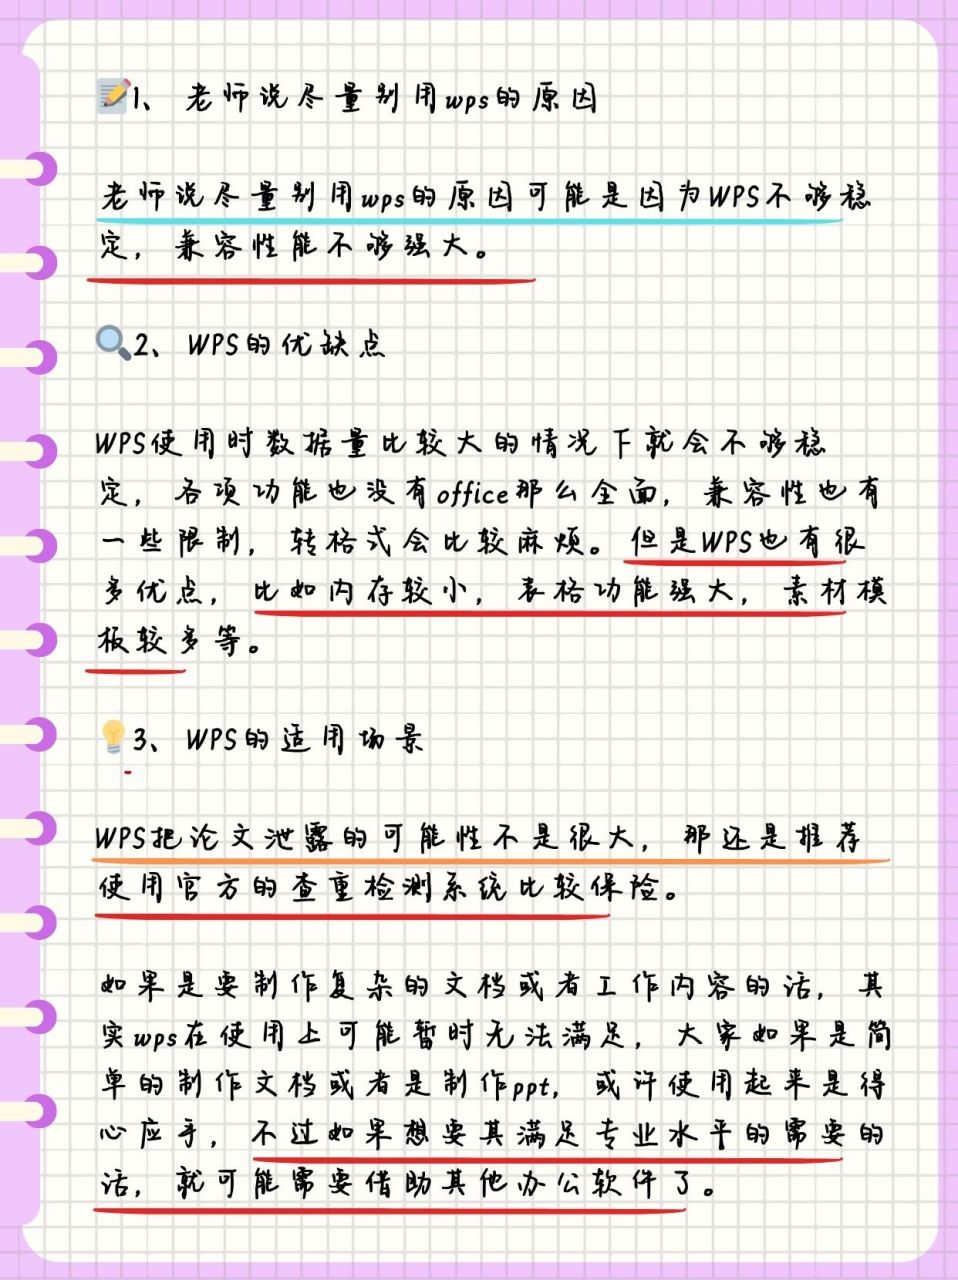 1、老师说尽量别用wps的原因
老师说尽量别用wps的原因可能是因为WPS不够稳
定，兼容性能不够强大。
2、WPS的优缺点
WPS使用时数据量比较大的情况下就会不够稳
定，各项功能也没有office那么全面，兼容性也有
一些限制，转格式会比较麻烦。但是WPS也有很
多优点，比如内存较小，表格功能强大，素材模
板较多等。
3、WPS的适用场景
WPS把论文泄露的可能性不是很大，那还是推荐
使用官方的查重检测系统比较保险。
如果是要制作复杂的文档或者工作内容的话，其
实wps在使用上可能暂时无法满足，大家如果是简
单的制作文档或者是制作ppt，或许使用起来是得
心应手，不过如果想要其满足专业水平的需要的
话，就可能需要借助其他办公软件了。